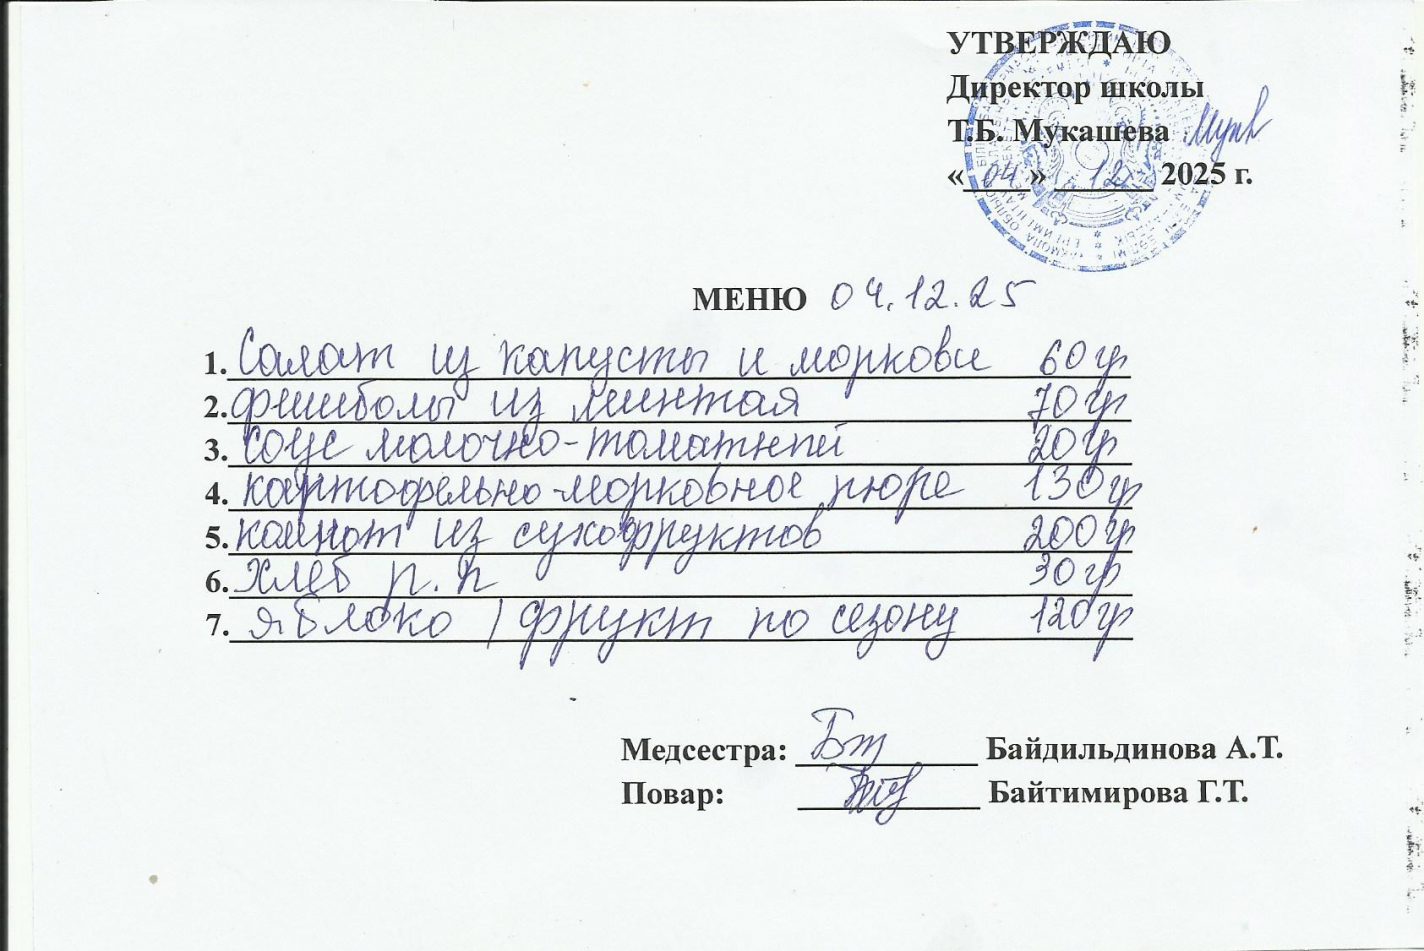 УТВЕРЖДАЮ
Директор школы
Т.Б. Мукашева
«04» 12 2025 г.
МЕНЮ 04.12.25
1. Салат из капусты и моркови 60 гр
2. фишболы из минтая 70 гр
3. соус молочно-томатный 20 гр
4. картофельно-морковное пюре 130 гр
5. компот из сухофруктов 200 гр
6. хлеб р.п 30 гр
7. яблоко / фрукт по сезону 120 гр
Медсестра: Байдильдинова А.Т.
Повар: Байтимирова Г.Т.